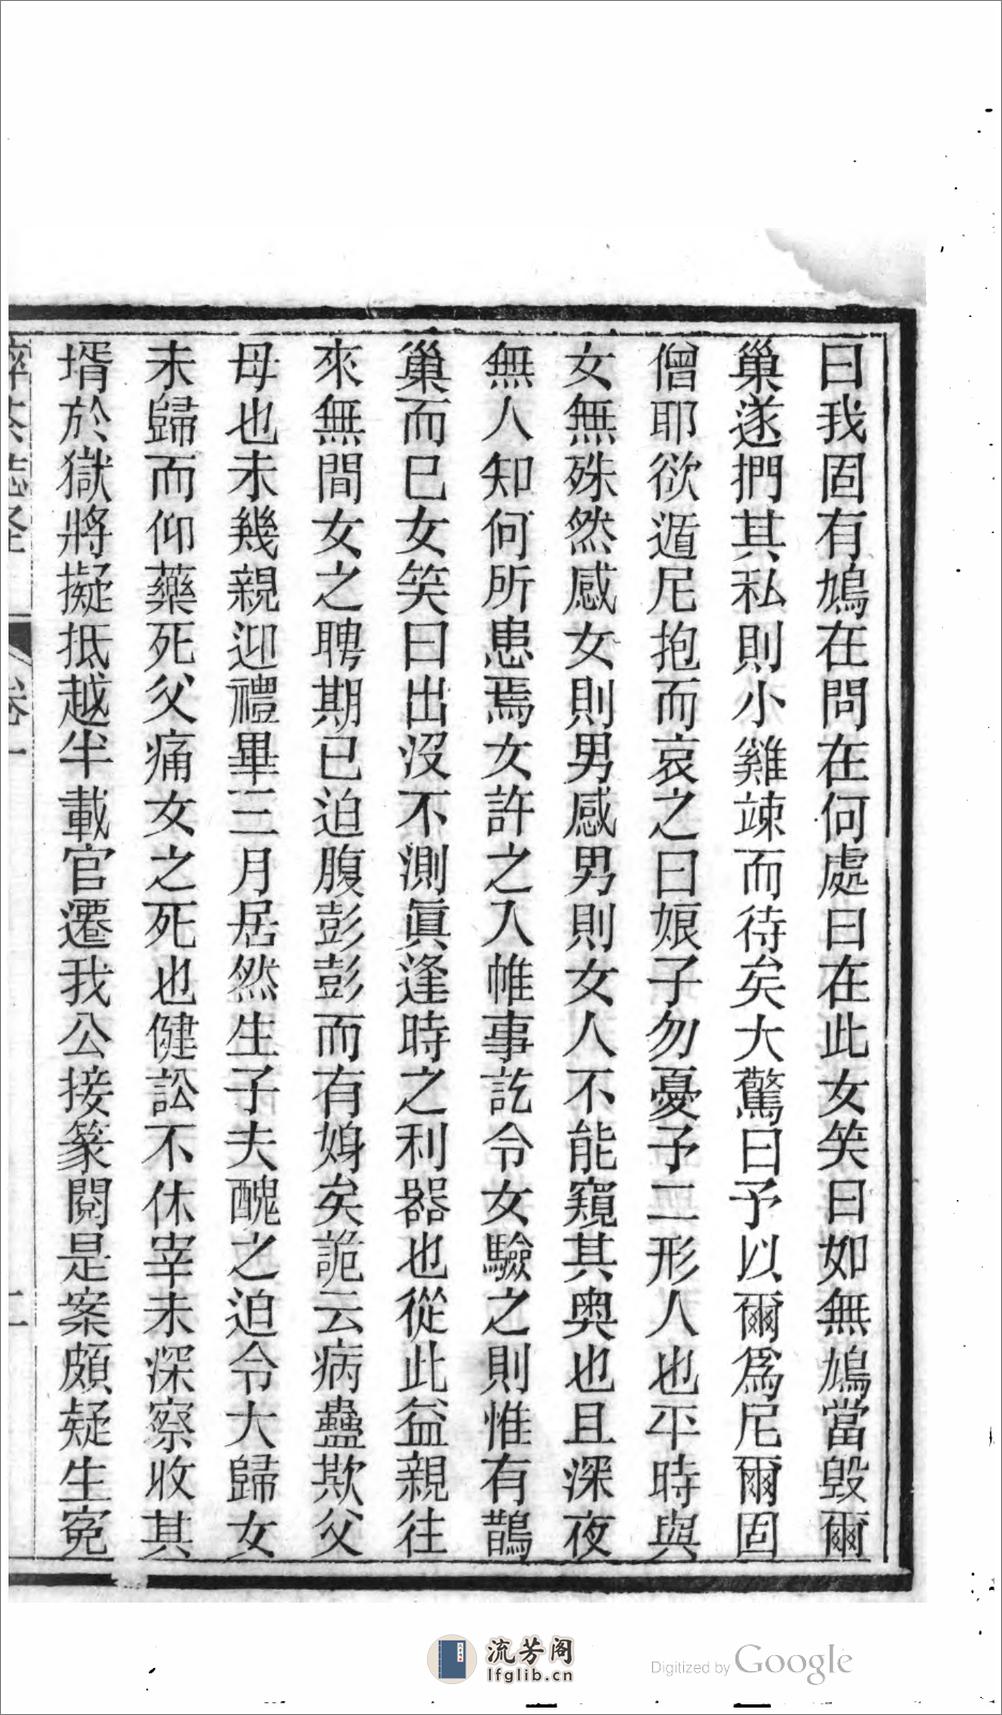 曰我固有鳩在問在何處曰在此女笑曰如無鳩當毀爾
巢遂捫其私則小雞竦而待矣大驚曰予以爾爲尼爾固
僧耶欲遁尼抱而哀之曰娘子勿憂予二形人也平時與
女無殊然感女則男感男則女人不能窺其奧也且深夜
無人知何所患焉女許之入帷事訖令女驗之則惟有鵲
巢而已女笑曰出沒不測眞逢時之利器也從此益親往
來無間女之聘期已迫腹彭彭而有娠矣詭云病蠱欺父
母也未幾親迎禮畢三月居然生子夫醜之迫令大歸女
未歸而仰藥死父痛女之死也健訟不休宰未深察收其
壻於獄將擬抵越半載官遷我公接篆閱是案頗疑生寃
醉茶志怪
卷一
二
流芳阁
lfglib.cn
Digitized by Google